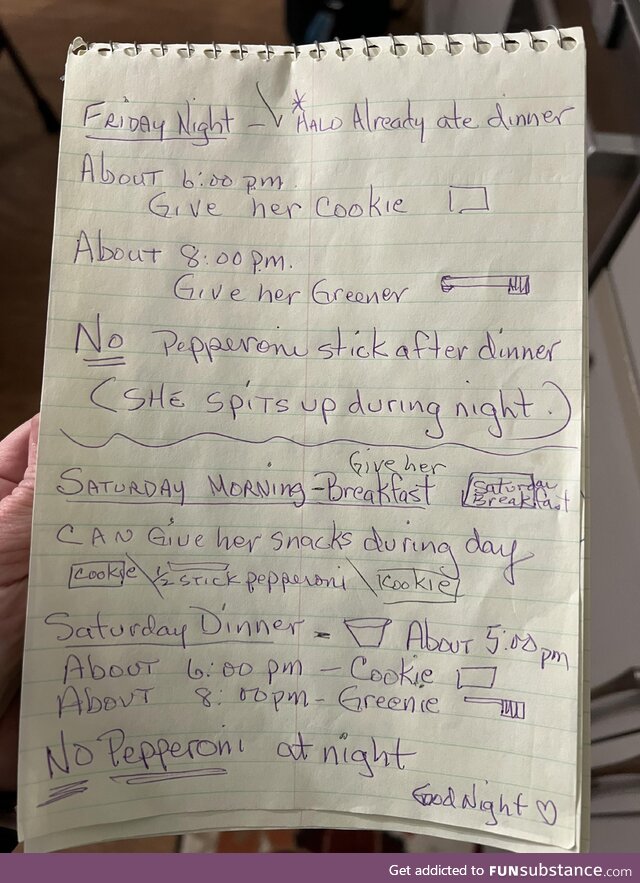 Friday Night - *Halo Already ate dinner
About 6:00 p.m.
Give her Cookie
About 8:00 p.m.
Give her Greener
No Pepperoni stick after dinner
(She spits up during night.)
Give her
Saturday Morning - Breakfast
Saturday
Breakfast
Can Give her snacks during day
Cookie \ 1/2 stick pepperoni \ Cookie
Saturday Dinner - About 5:00 pm
About 6:00 pm - Cookie
About 8:00pm - Greenie
No Pepperoni at night
Good Night ♡
Get addicted to FUNsubstance.com